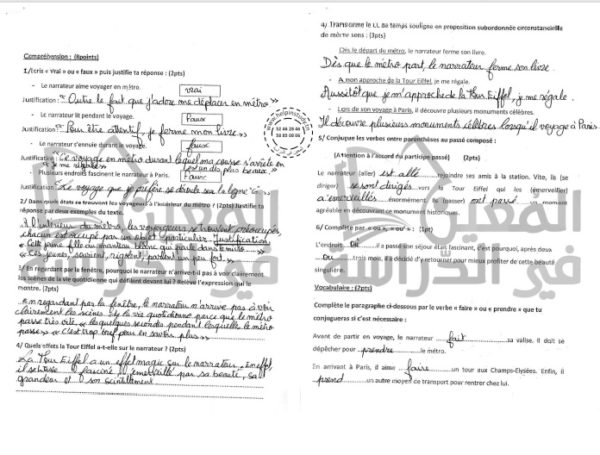 Compréhension : (8points)
1/Ecris « Vrai » ou « faux » puis justifie ta réponse : (2pts)
- Le narrateur aime voyager en métro. vrai
Justification : "Outre le fait que j'adore me déplacer en métro »
- Le narrateur lit pendant le voyage. faux
Justification : "Pour être attentif, je ferme mon livre »
- Le narrateur s'ennuie durant le voyage. faux
Justification : Ce voyage en métro durant lequel ma course s'arrête en
« je me régale » plus beaux »
- Plusieurs endroits fascinent le narrateur à Paris. Faux
Justification : Le voyage que je préfère se déroule sur la ligne "6" »
2/ Dans quels états se trouvent les voyageurs à l'intérieur du métro ? (2pts) Justifie ta
réponse par deux exemples du texte.
À l'intérieur du métro, les voyageurs se trouvent
chacun est occupé par un objet Justification
« Cette jeune fille au manteau blanc qui
« Ces jeunes, sourient, rigolent, parlent un peu fort »
3/ En regardant par la fenêtre, pourquoi le narrateur n'arrive-t-il pas à voir clairement
les scènes de la vie quotidienne qui défilent devant lui ? Relève l'expression qui le
montre. (2pts)
En regardant par la fenêtre, le narrateur n'arrive pas à voir
clairement les scènes de la vie quotidienne parce que le métro
passe très vite « quelques secondes pendant lesquelles le métro
passe » « C'est trop bref pour en savoir plus »
4/ Quels effets la Tour Eiffel a-t-elle sur le narrateur ? (2pts)
La Tour Eiffel a un effet magie sur le narrateur. En effet,
elle fascine par sa beauté, sa
grandeur et son scintillement
4/ Transforme le CC de temps souligné en proposition subordonnée circonstancielle
de même sens : (3pts)
Dès le départ du métro, le narrateur ferme son livre.
Dès que le métro part, le narrateur ferme son livre.
- A mon approche de la Tour Eiffel, je me régale.
Aussitôt que je m'approche de la Tour Eiffel, je me régale.
- Lors de son voyage à Paris, il découvre plusieurs monuments célèbres.
Il découvre plusieurs monuments célèbres lorsqu'il voyage à Paris.
5/ Conjugue les verbes entre parenthèses au passé composé :
(Attention à l'accord du participe passé) (2pts)
Le narrateur (aller) est allé rejoindre ses amis à la station. Vite, ils (se
diriger) se sont dirigés vers la Tour Eiffel qui les (émerveiller)
a émerveillés énormément. Ils (passer) ont passé un moment
agréable en découvrant ce monument historique.
6/ Complète par « ou », « où » : (1pt)
L'endroit où il a passé son séjour était fascinant, c'est pourquoi, après deux
ou trois mois, il a décidé d'y retourner pour mieux profiter de cette beauté
singulière.
Vocabulaire : (2pts)
Complète le paragraphe ci-dessous par le verbe « faire » ou « prendre » que tu
conjugueras si c'est nécessaire :
Avant de partir en voyage, le narrateur fait sa valise. Il doit se
dépêcher pour prendre le métro.
En arrivant à Paris, il aime faire un tour aux Champs-Elysées. Enfin, il
prend un autre moyen de transport pour rentrer chez lui.
المعين
في الدراسة
المعين
في الدراسة